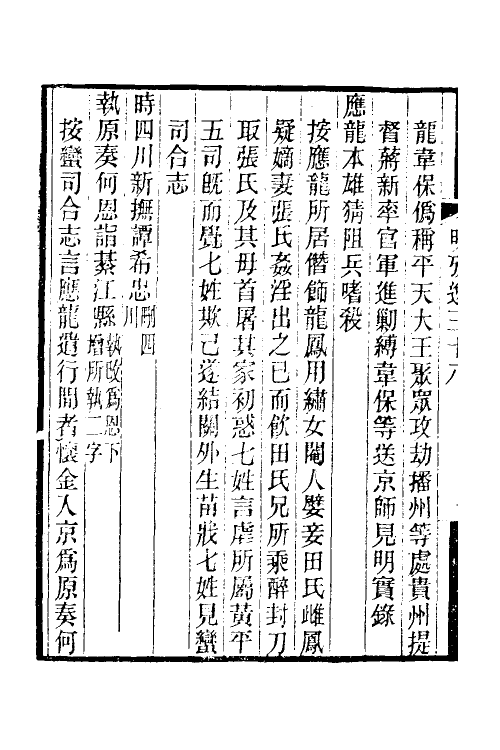 龍韋保僞稱平天大王聚眾攻劫播州等處貴州提
督蔣新率官軍進勦縛韋保等送京師見明實錄
應龍本雄猜阻兵嗜殺
按應龍所居僭飾龍鳳用繡女閹人嬖妾田氏雌鳳
疑嫡妻張氏姦淫出之已而飲田氏兄所乘醉封刀
取張氏及其母首屠其家初惑七姓言虐所屬黃平
五司旣而覺七姓欺己遂結關外生苗戕七姓見蠻
司合志
時四川新撫譚希忠刪四川
執原奏何恩詣綦江縣執改爲恩下增所執二字
按蠻司合志言應龍遣行間者懷金入京爲原奏何